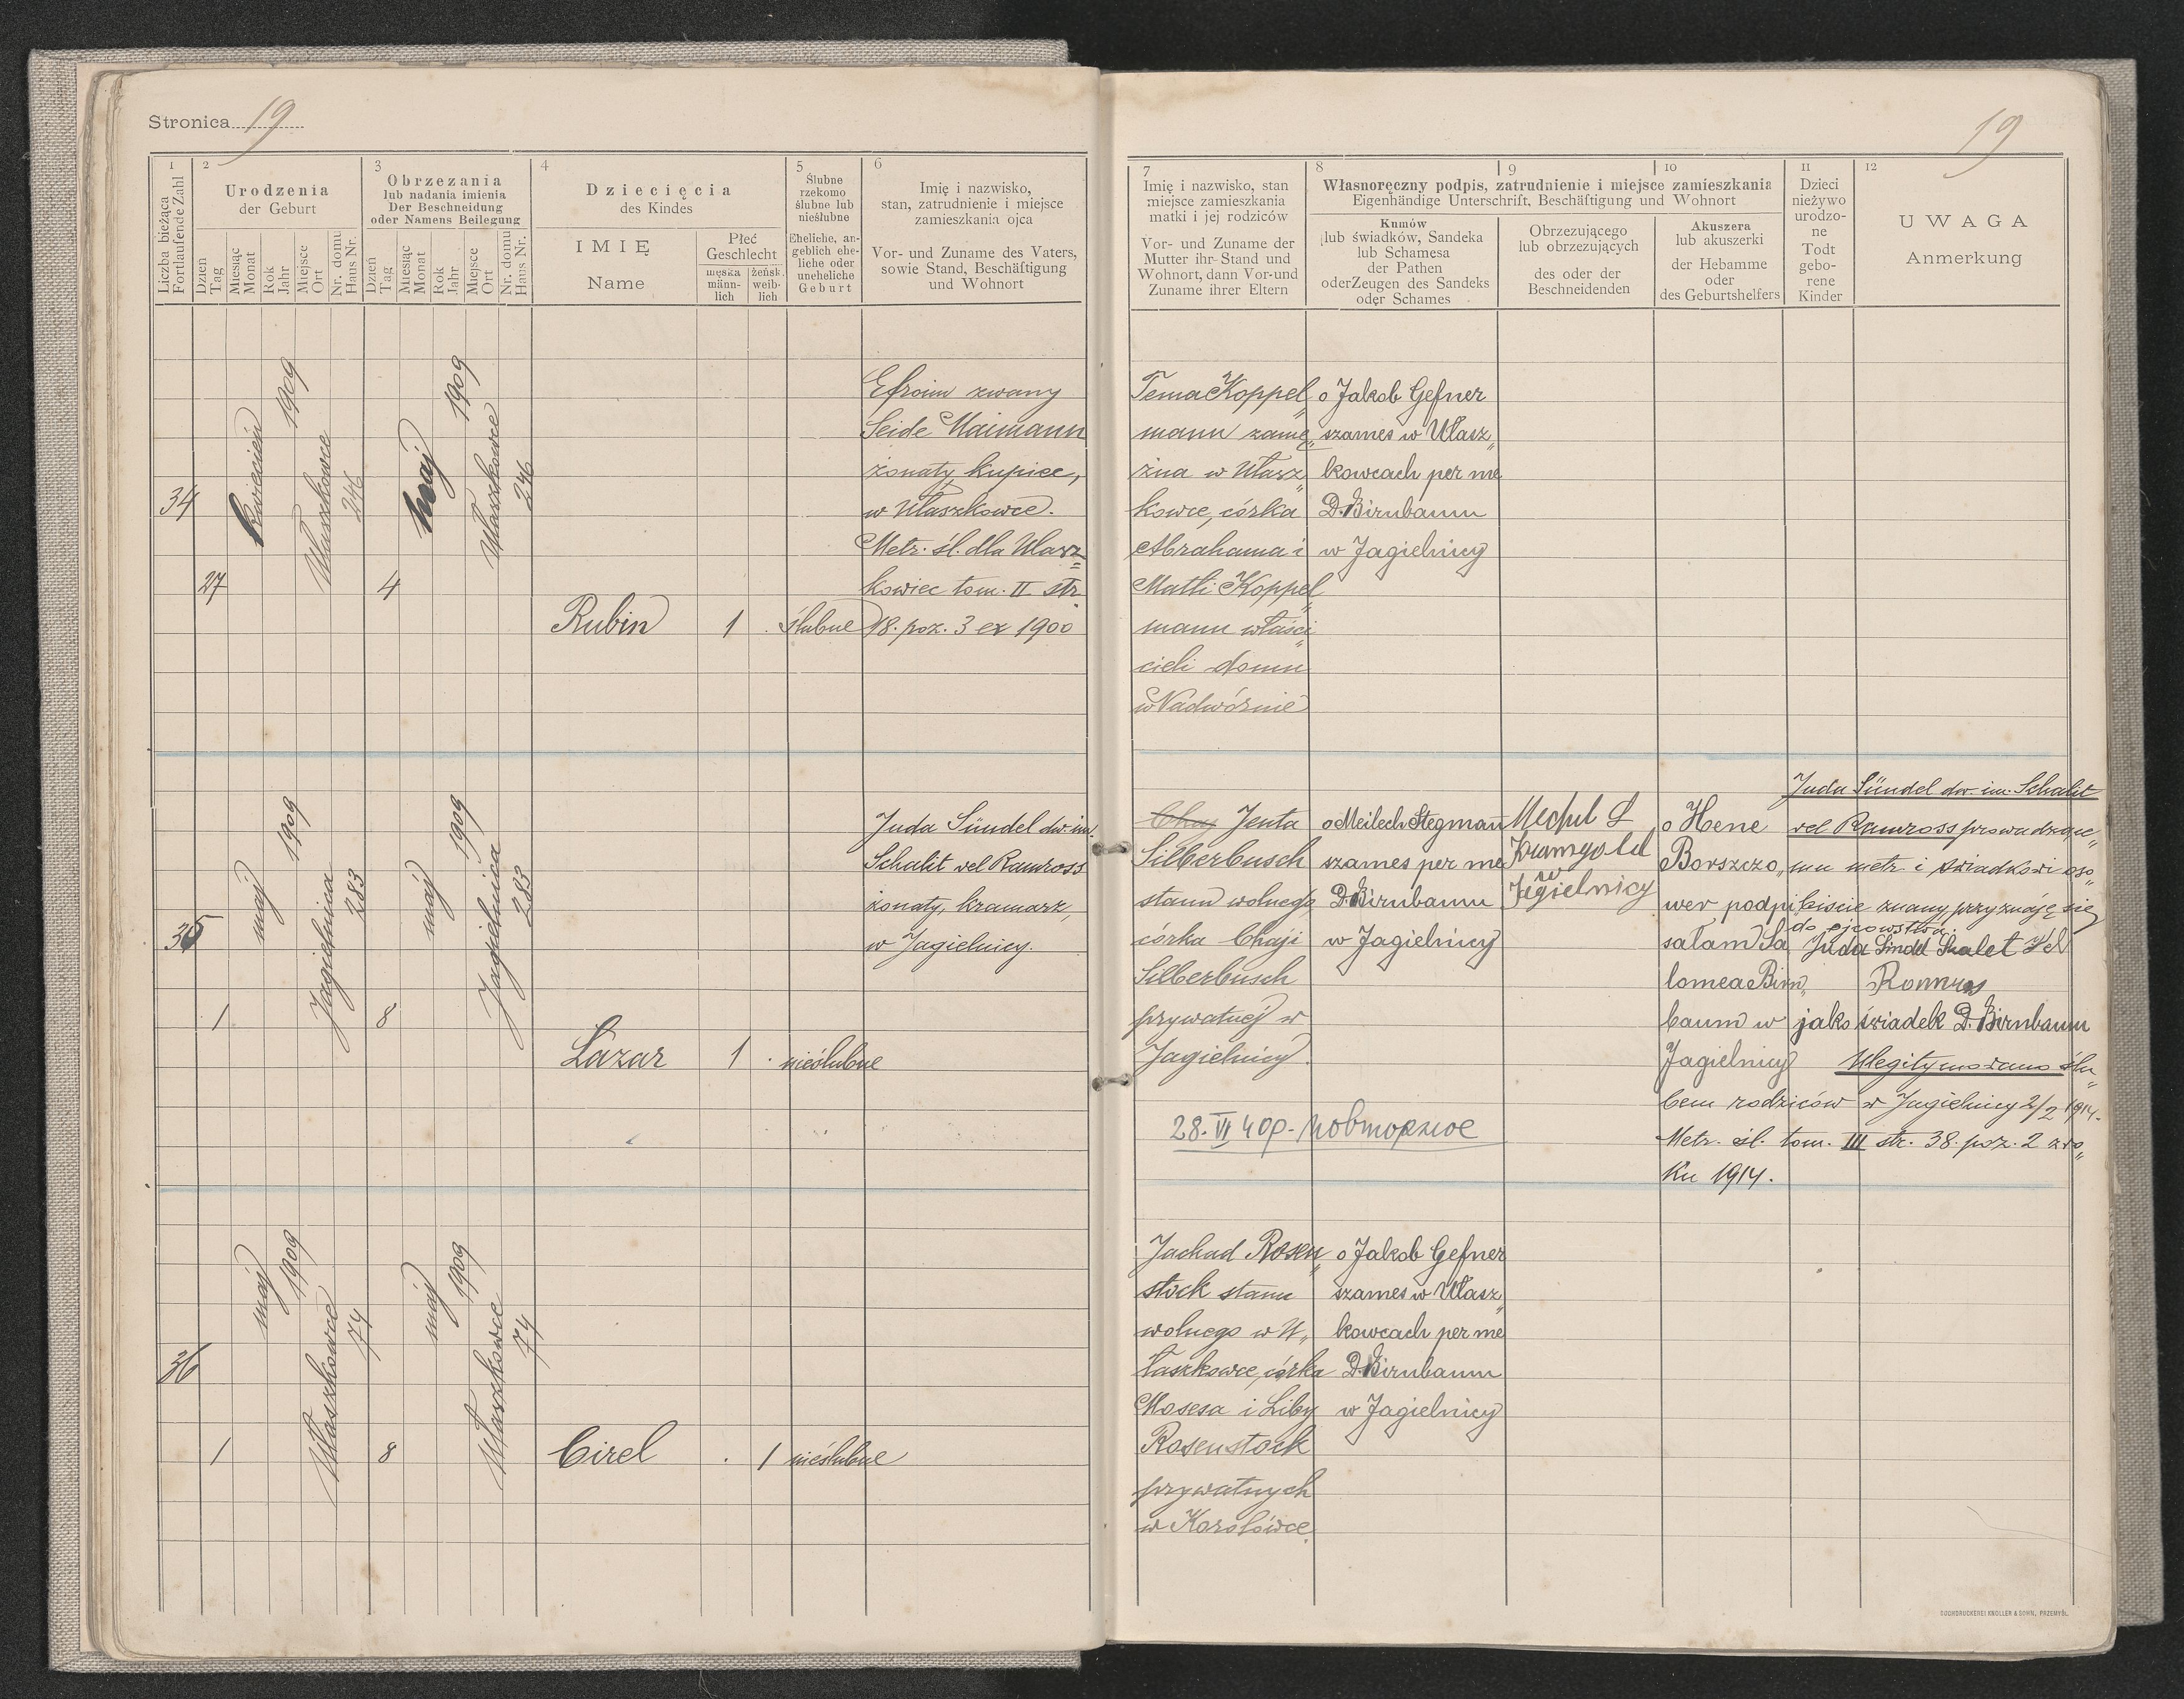 Stronica 19
19
1
Liczba bieżąca
Fortlaufende Zahl
2
Urodzenia
der Geburt
Dzień
Tag
Miesiąc
Monat
Rok
Jahr
Miejsce
Ort
Nr. domu
Haus Nr.
3
Obrzezania
lub nadania imienia
Der Beschneidung
oder Namens Beilegung
Dzień
Tag
Miesiąc
Monat
Rok
Jahr
Miejsce
Ort
Nr. domu
Haus Nr.
4
Dziecięcia
des Kindes
IMIĘ
Name
Płeć
Geschlecht
męska
männ-
lich
żeńsk.
weib-
lich
5
Ślubne
rzekomo
ślubne lub
nieślubne
Eheliche, an-
geblich ehe-
liche oder
uneheliche
Geburt
6
Imię i nazwisko,
stan, zatrudnienie i miejsce
zamieszkania ojca
Vor- und Zuname des Vaters,
sowie Stand, Beschäftigung
und Wohnort
7
Imię i nazwisko, stan
miejsce zamieszkania
matki i jej rodziców
Vor- und Zuname der
Mutter ihr- Stand und
Wohnort, dann Vor- und
Zuname ihrer Eltern
8
9
10
Własnoręczny podpis, zatrudnienie i miejsce zamieszkania
Eigenhändige Unterschrift, Beschäftigung und Wohnort
Kumów
lub świadków, Sandeka
lub Schamesa
der Pathen
oder Zeugen des Sandeks
oder Schames
Obrzezującego
lub obrzezujących
des oder der
Beschneidenden
Akuszera
lub akuszerki
der Hebamme
oder
des Geburtshelfers
11
Dzieci
nieżywo
urodzo-
ne
Todt
gebo-
rene
Kinder
12
UWAGA
Anmerkung
34
27
kwiecień
1909
Ułaszkowce
246
4
maj
1909
Ułaszkowce
246
Rubin
1
ślubne
Efroim zwany
Seide Naimann
żonaty, kupiec,
w Ułaszkowce.
Metr. śl. dla Ułasz=
kowiec tom. II str.
18. poz. 3 ex 1900
Tema Koppel„
mann zamę„
żna w Ułasz„
kowce, córka
Abrahama i
Matli Koppel„
mann właści„
cieli domu
w Nadwórnie
o Jakob Gefner
szames w Ułasz„
kowcach per me
D. Birnbaum
w Jagielnicy
35
1
maj
1909
Jagielnica
283
8
maj
1909
Jagielnica
283
Lazar
1
nieślubne
Juda Sündel dw. im.
Schalit vel Ramross
żonaty, kramarz,
w Jagielnicy.
Chaj Jenta
Silberbusch
stanu wolnego
córka Chaji
Silberbusch
prywatnej w
Jagielnicy.
o Meilech Stegmann
szames per me
D. Birnbaum
w Jagielnicy
Mechel L
Krumgold
w
Jagielnicy
o Hene
Borszczo„
wer podpi„
sałam Sa„
lomea Birn„
baum w
Jagielnicy
Juda Sündel dw. im. Schalit
vel Ramross prowadzące„
mu metr. i świadkowi oso„
biście znany, przyznaję się
do ojcowstwa.
Juda Sindel Skalet Vel
Romros
jako świadek D. Birnbaum
Ulegitymowano ślu„
bem rodziców w Jagielnicy 2/2 1914.
Metr. śl. tom. III str. 38. poz. 2 z ro„
ku 1914.
28. VI 40р. повторное
36
1
maj
1909
Ułaszkowce
74
8
maj
1909
Ułaszkowce
74
Cirel
1
nieślubne
Jachad Rosen„
stock stanu
wolnego w U„
łaszkowce, córka
Mosesa i Liby
Rosenstock
prywatnych
w Korolówce
o Jakob Gefner
szames w Ułasz„
kowcach per me
D. Birnbaum
w Jagielnicy
BUCHDRUCKEREI KNOLLER & SOHN, PRZEMYŚL.